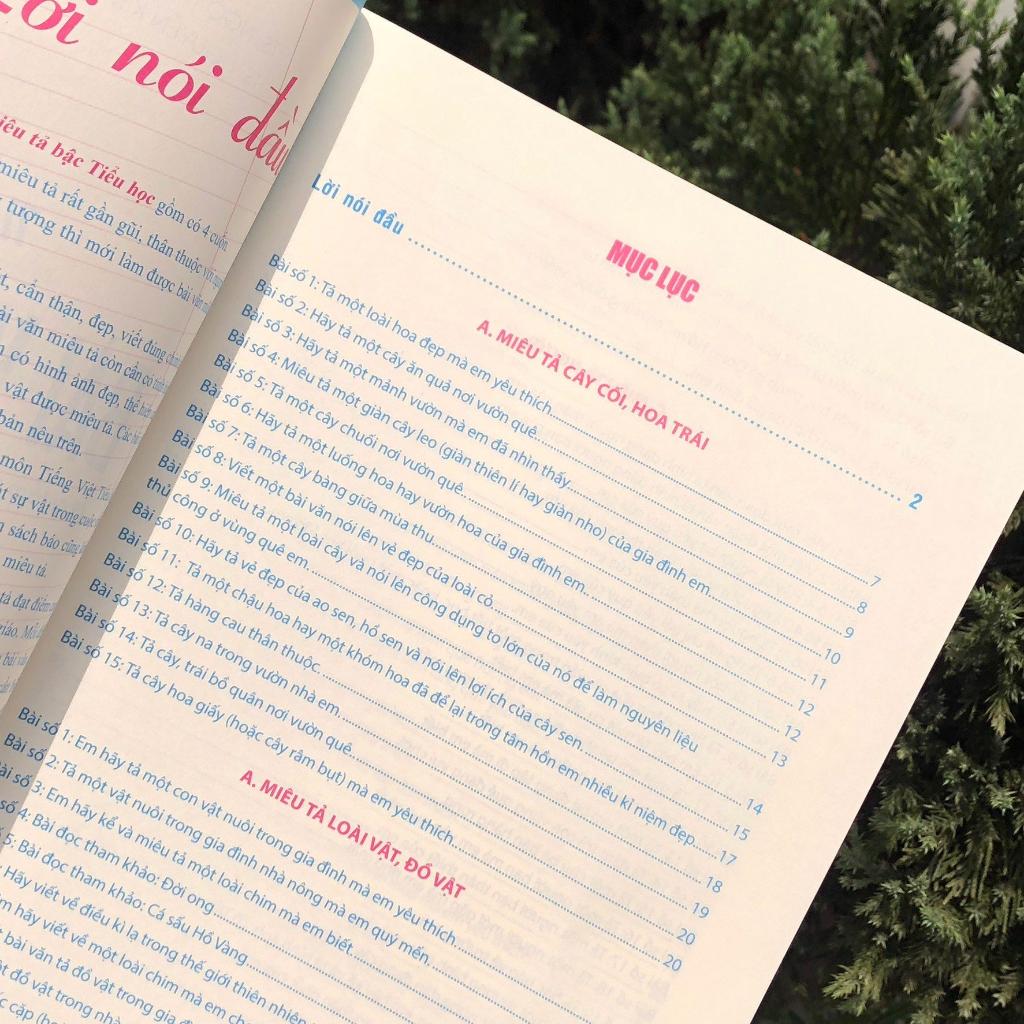 nói đầu
miêu tả bậc Tiểu học gồm có 4 cuốn
miêu tả rất gần gũi, thân thuộc với
tượng thì mới làm được bài văn
cẩn thận, đẹp, viết đúng
văn miêu tả còn cần có
có hình ảnh đẹp, thể hiện
vật được miêu tả. Các
bản nêu trên.
môn Tiếng Việt
sự vật trong cuộc
sách báo cũng
miêu tả.
đạt điểm
MỤC LỤC
Lời nói đầu ........ 2
A. MIÊU TẢ CÂY CỐI, HOA TRÁI
Bài số 1: Tả một loài hoa đẹp mà em yêu thích........ 7
Bài số 2: Hãy tả một cây ăn quả nơi vườn quê........ 8
Bài số 3: Hãy tả một mảnh vườn mà em đã nhìn thấy........ 9
Bài số 4: Miêu tả một giàn cây leo (giàn thiên lí hay giàn nho) của gia đình em........ 10
Bài số 5: Tả một cây chuối nơi vườn quê........ 11
Bài số 6: Hãy tả một luống hoa hay vườn hoa của gia đình em........ 12
Bài số 7: Tả một cây bàng giữa mùa thu........ 12
Bài số 8: Viết một bài văn nói lên vẻ đẹp của loài cỏ........ 13
Bài số 9: Miêu tả một loài cây và nói lên công dụng to lớn của nó để làm nguyên liệu
thủ công ở vùng quê em........ 14
Bài số 10: Hãy tả vẻ đẹp của ao sen, hồ sen và nói lên lợi ích của cây sen........ 15
Bài số 11: Tả một chậu hoa hay một khóm hoa đã để lại trong tâm hồn em nhiều kỉ niệm đẹp........ 17
Bài số 12: Tả hàng cau thân thuộc ........ 18
Bài số 13: Tả cây na trong vườn nhà em........ 19
Bài số 14: Tả cây, trái bồ quân nơi vườn quê........ 20
Bài số 15: Tả cây hoa giấy (hoặc cây râm bụt) mà em yêu thích........ 20
A. MIÊU TẢ LOÀI VẬT, ĐỒ VẬT
Bài số 1: Em hãy tả một con vật nuôi trong gia đình mà em yêu thích........
Bài số 2: Tả một vật nuôi trong gia đình nhà nông mà em quý mến........
Bài số 3: Em hãy kể và miêu tả một loài chim mà em biết........
số 4: Bài đọc tham khảo: Đời ong........
5: Bài đọc tham khảo: Cá sấu Hồ Vàng........
Hãy viết về điều kì lạ trong thế giới thiên nhiên
hãy viết về một loài chim mà em
bài văn tả đồ vật trong gia
đồ vật trong nhà
cặp